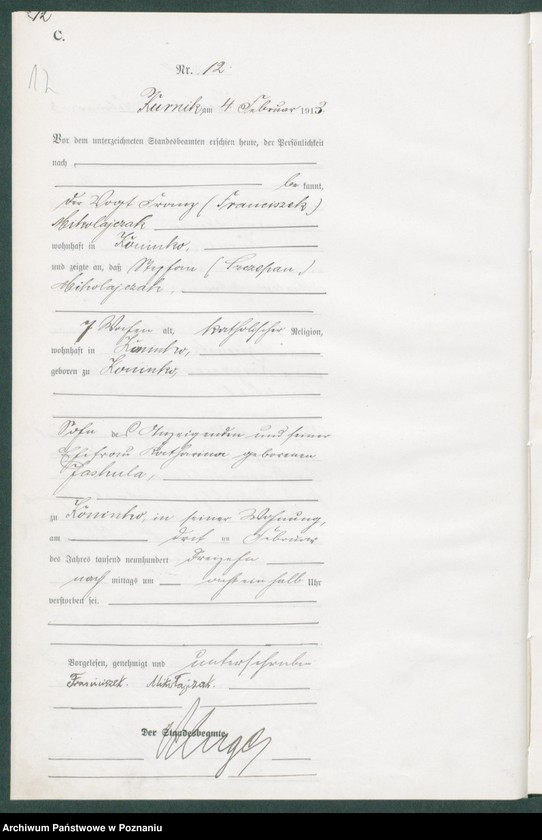 12
C.
12
Nr. 12
Kurnik, am 4 Februar 1913
Vor dem unterzeichneten Standesbeamten erschien heute, der Persönlichkeit
nach
be kannt,
der Vogt Franz (Franciszek)
Mikolajczak
wohnhaft in Koninko,
und zeigte an, daß Stephan (Szczepan)
Mikolajczak,
7 Wochen alt, katholischer Religion,
wohnhaft in Koninko,
geboren zu Koninko,
Sohn des Anzeigenden und seiner
Ehefrau Katharina geborenen
zu Koninko, in seiner Wohnung,
am drei ten Februar
des Jahres tausend neunhundert dreizehn
nach mittags um acht ein halb Uhr
verstorben sei.
Vorgelesen, genehmigt und unterschrieben
Franciszek Mikołajczak.
Der Standesbeamte
Archiwum Państwowe w Poznaniu